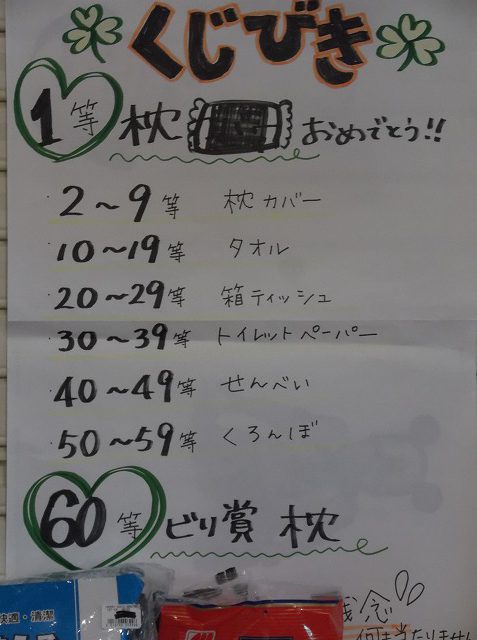 くじびき
1等 枕 おめでとう!!
2～9等 枕カバー
10～19等 タオル
20～29等 箱ティッシュ
30～39等 トイレットペーパー
40～49等 せんべい
50～59等 くろんぼ
60等 ビリ賞 枕
残念
何も当たりません
快適・清潔